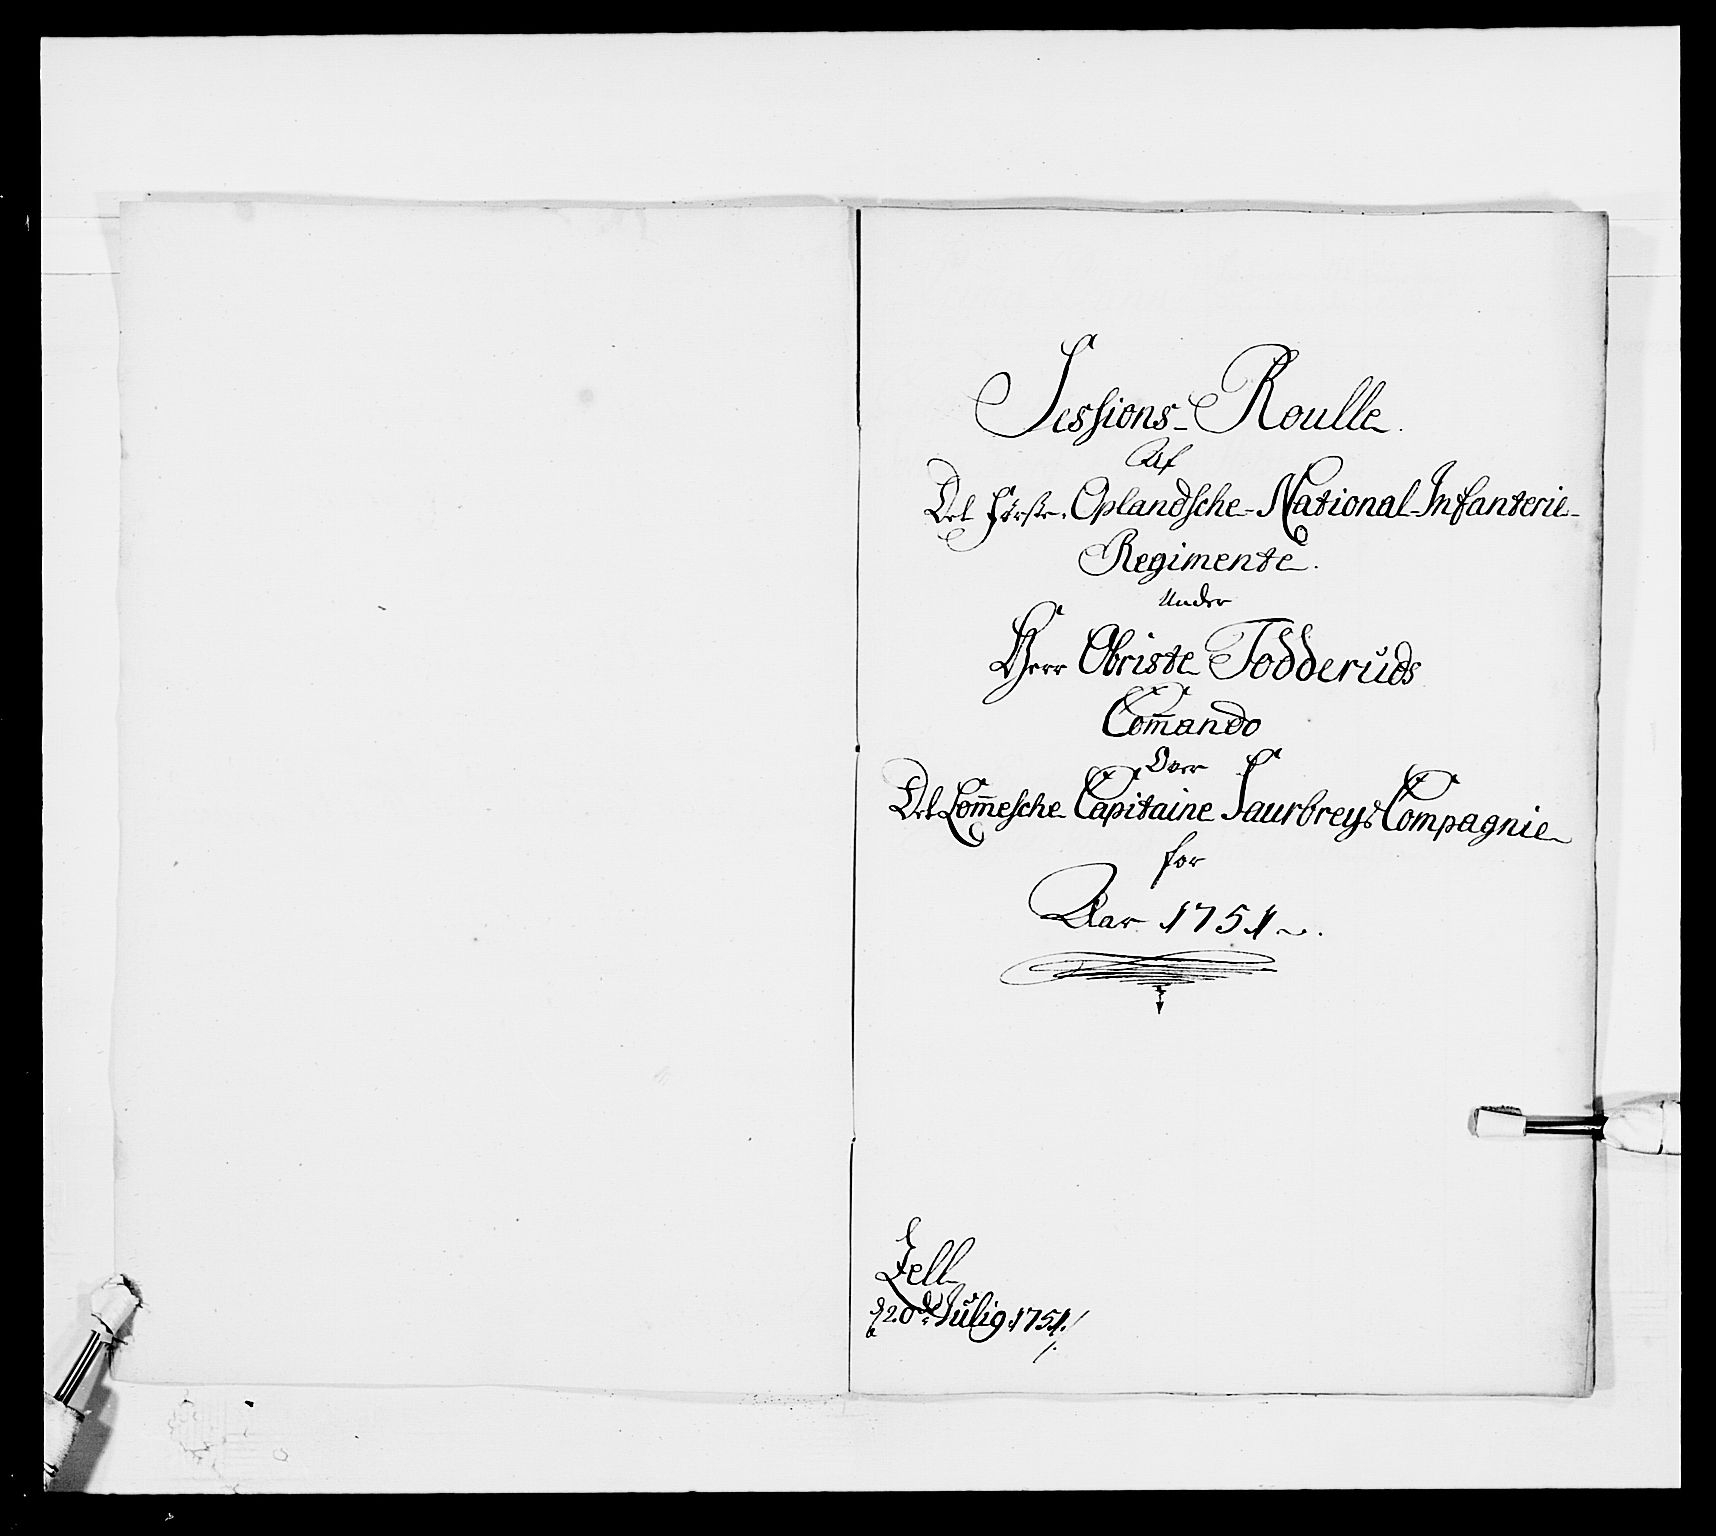 Sessions-Roulle.
Af
Det Förste Oplandsche-National-Infanterie-
Regimente.
Under
Herr Obriste Todderüds
Com̅ando
Over
Det Lom̅esche Capitaine Saurbreys Compagnie
for
Aar 1751.
Zell
d 20de Julij 1751.